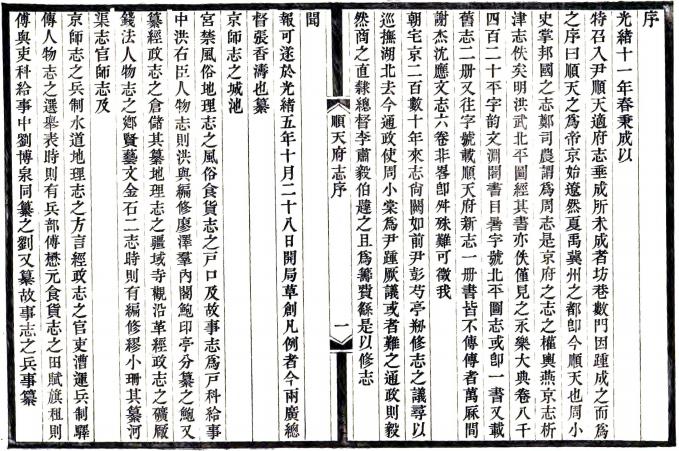 序
光緒十一年春秉成以
特召入尹順天適府志垂成所未成者坊巷數門因踵成之而爲
之序曰順天之爲帝京始遼然夏禹冀州之都卽今順天也周小
史掌邦國之志鄭司農謂爲周志是京府之志之權輿燕京志析
津志佚矣明洪武北平圖經其書亦佚僅見之永樂大典卷八千
四百二十平字韵文淵閣書目暑字號北平圖志或卽一書又載
舊志二册又往字號載順天府新志一册書皆不傳傳者萬厤間
謝杰沈應文志六卷非畧卽舛殊難可徵我
朝宅京二百數十年來志尙闕如前尹彭芍亭剏修志之議尋以
巡撫湖北去今通政使周小棠爲尹踵厥議或者難之通政則毅
然商之直隸總督李肅毅伯韙之且爲籌費繇是以修志
順天府志序
一
聞
報可遂於光緒五年十月二十八日開局草創凡例者今兩廣總
督張香濤也纂
京師志之城池
宮禁風俗地理志之風俗食貨志之戶口及故事志爲戶科給事
中洪右臣人物志則洪與編修廖澤羣內閣鮑印亭分纂之鮑又
纂經政志之倉儲其纂地理志之疆域寺觀沿革經政志之礦厰
錢法人物志之鄉賢藝文金石二志時則有編修繆小珊其纂河
渠志官師志及
京師志之兵制水道地理志之方言經政志之官吏漕運兵制驛
傳人物志之選舉表時則有兵部傅懋元食貨志之田賦旗租則
傅與吏科給事中劉博泉同纂之劉又纂故事志之兵事纂